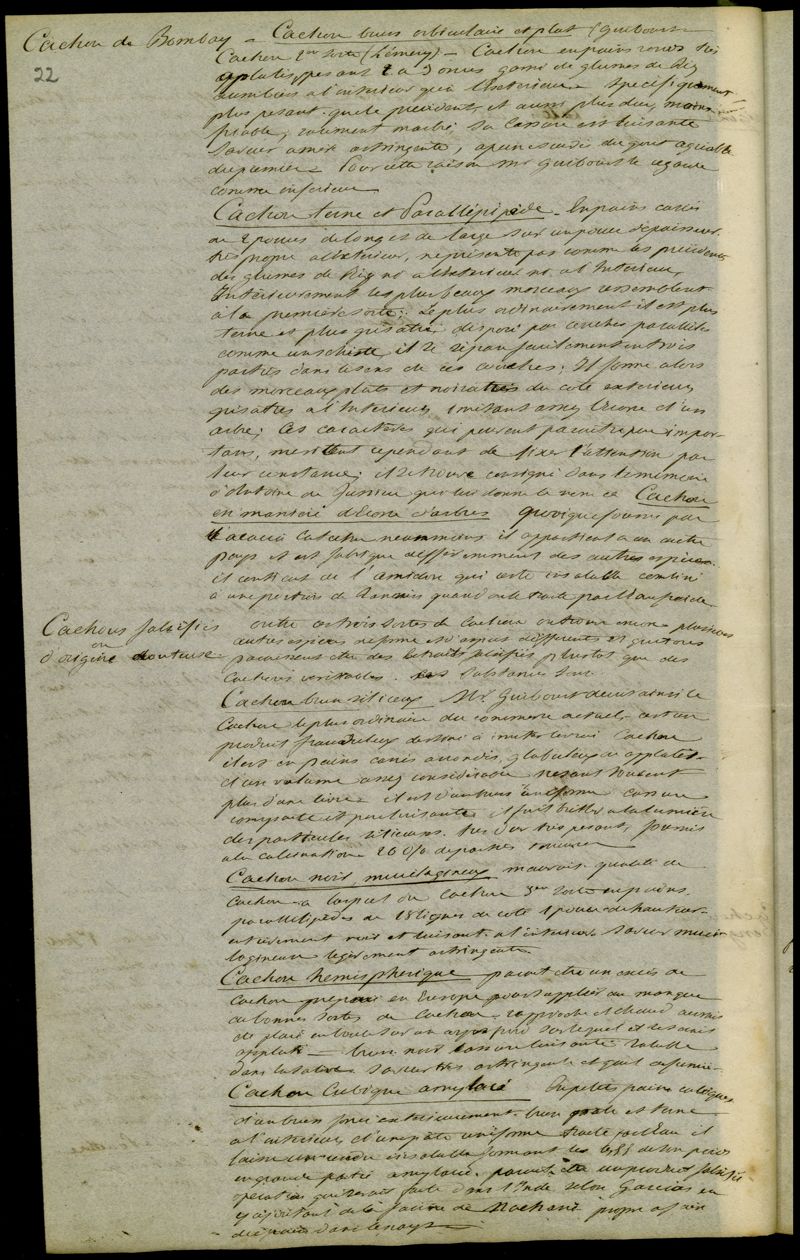 Cachou de Bombay = Cachou brun orbiculaire et plat (Guibourt
22
Cachou 2me sorte (Lémery) — Cachou en pains ronds très
applatis, pesant 2 a 3 onces garni de glumes de Riz
à l'extérieur Spécifiquement
plus pesant que le précédent, et aussi plus dur, moins
friable, rarement marbré, Sa Cassure est luisante
Saveur amère astringente, du gout agréable
du premier — Pour cette raison Mr Guibourt le regarde
comme inférieur
Cachou terne et Parallépipède — En pains carrés
de 2 pouces de long et de large sur un pouce d'épaisseur
très propre à l'extérieur, ne présente pas comme les précédents
des glumes de Riz ni à l'extérieur ni à l'Intérieur,
Intérieurement les plus beaux morceaux ressemblent
à la première sorte; Le plus ordinairement il est plus
terne et plus grisâtre disposé par couches parallèles
comme un schiste, il se sépare facilement en trois
parties dans le sens de ces couches; Il forme alors
des morceaux plats et noirâtres du coté extérieur
grisatres a l'Intérieur, imitant assez l'écorce d'un
arbre; Ces caractères qui peuvent paraître peu impor-
tans, méritent cependant de fixer l'attention par
leur constance; il se trouve consigné dans le mémoire
d'Antoine de Jussieu qui lui donne le nom de Cachou
en manière d'écorce d'arbres quoique fourni par
l'acacia Catechu néanmoins il appartient a un autre
pays et est fabriqué différemment des autres espèces.
il contient de l'amidon qui reste insoluble combiné
à une portion de Tannin quand on le traite par l'eau froide.
Cachous falsifiés
ou
d'origine douteuse
outre ces trois sortes de Cachou on trouve encore plusieurs
autres espèces de forme et d'aspect différents et qui tous
paraissent être des extraits falsifiés plustot que des
Cachous véritables. Ces Substances sont
Cachou brun siliceux Mr Guibourt décrit ainsi le
Cachou le plus ordinaire du commerce actuel, c'est un
produit frauduleux destiné à imiter le vrai Cachou
il est en pains carrés arrondis, globuleux ou applatis
d'un volume assez considérable pesant souvent
plus d'une livre il est d'un brun uniforme cassure
compacte et peu luisante et fait briller a la lumière
des particules siliceuses. très dur très pesant, fournit
a la calcination 26 0/0 de parties terreuses
Cachou noir, mucilagineux mauvaise qualité de
Cachou a l'aspect du Cachou 3me sorte en pains
parallélipipèdes de 18 lignes de coté 1 pouce de hauteur
entièrement noir et luisant a l'intérieur, Saveur muci-
lagineuse légèrement astringente
Cachou hémispherique parait etre un essai de
Cachou préparé en Europe pour suppléer au manque
de bonnes sortes de Cachou — rapproché et chaud aura
été placé en boule sur un corps froid sur lequel il se sera
applati — brun noir cassure luisante, Soluble
dans la Salive Saveur très astringente et gout de fumée
Cachou Cubique amylacé En petits pains cubiques
d'un brun foncé extérieurement, brun et terne
a l'intérieur, d'une pâte uniforme traité par l'eau il
laisse un résidu insoluble formant les 0,55 de son poids
en grande partie amylacé. parait etre un produit falsifié
opération qui serait faite dans l'Inde selon Garcias en
y ajoutant de la farine de Nachani propre a faire
du pain dans le pays